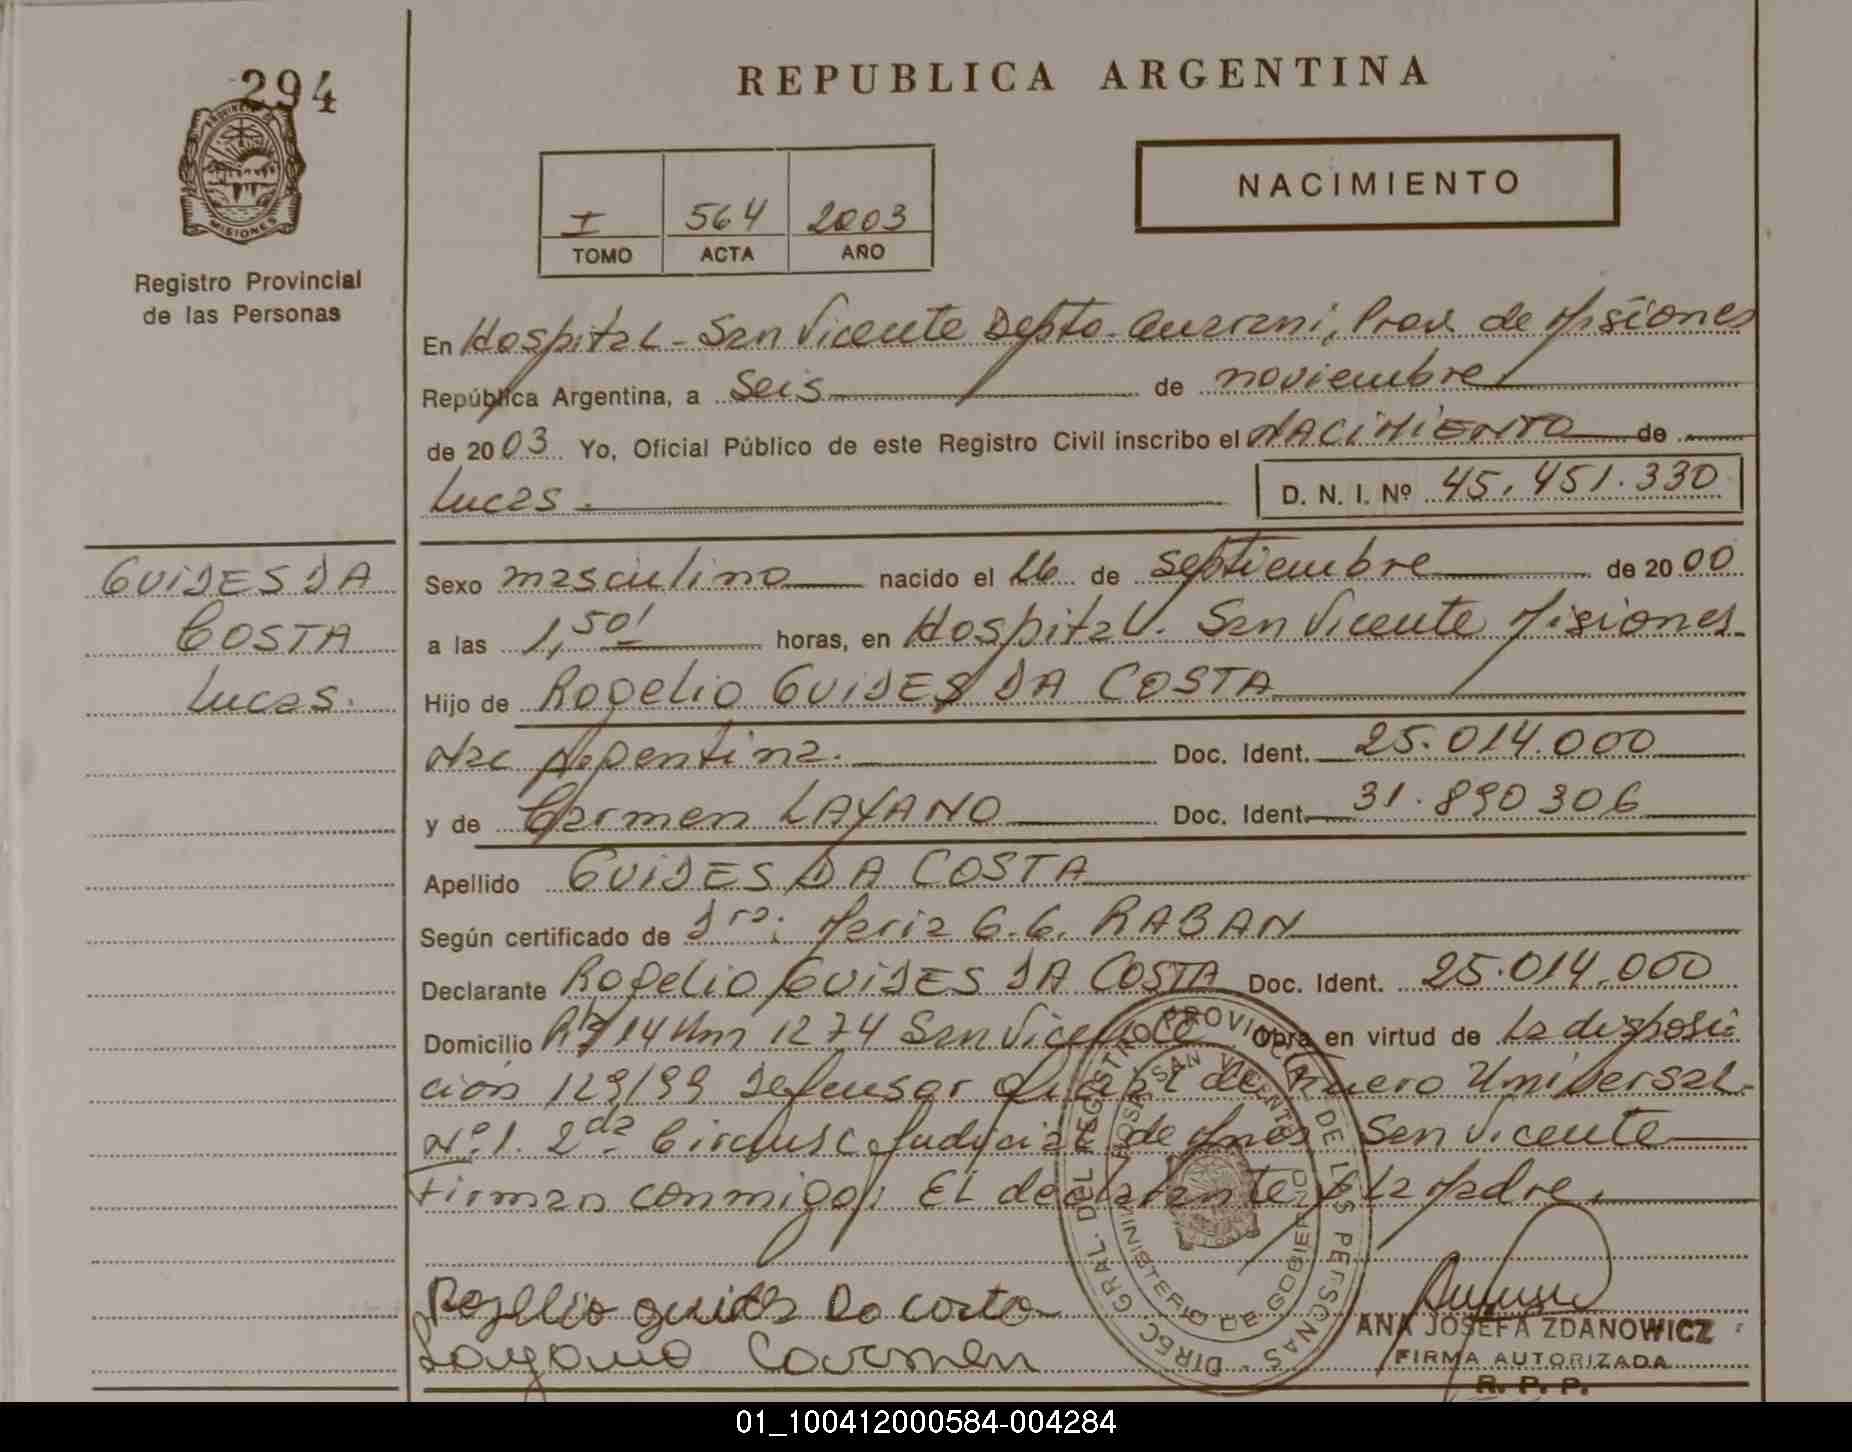 294
PROVINCIA DE
MISIONES
Registro Provincial
de las Personas
REPUBLICA ARGENTINA
NACIMIENTO
I 564 2003
TOMO ACTA AÑO
En Hospital - San Vicente Depto. Guarani, Prov. de Misiones
República Argentina, a Seis de noviembre
de 2003 Yo, Oficial Público de este Registro Civil inscribo el NACIMIENTO de
Lucas. D. N. I. Nº 45.451.330
GUIDES DA
COSTA
Lucas.
Sexo masculino nacido el 26 de septiembre de 2000
a las 1,50' horas, en Hospital. San Vicente Misiones
Hijo de Rogelio GUIDES DA COSTA
Nac Argentina. Doc. Ident. 25.014.000
y de Carmen LAYANO Doc. Ident. 31.890306
Apellido GUIDES DA COSTA
Según certificado de Dra: Maria G.G. RABAN
Declarante Rogelio GUIDES DA COSTA Doc. Ident. 25.014.000
Domicilio 14 Km 1274 San Vicente Obra en virtud de La disposi
ción 129/99 Defensor Oficial de Fuero Universal.
Nº1. 2da Circunsc Judicial de Mnes San Vicente
Firman conmigo; EL declarante y La Madre.
DIREC. GRAL. DEL REGISTRO PROVINCIAL DE LAS PERSONAS
HOSP. SAN VICENTE
MINISTERIO DE GOBIERNO
Rogelio guides Da costa
Layano Carmen
ANA JOSEFA ZDANOWICZ
FIRMA AUTORIZADA
R. P. P.
01_100412000584-004284